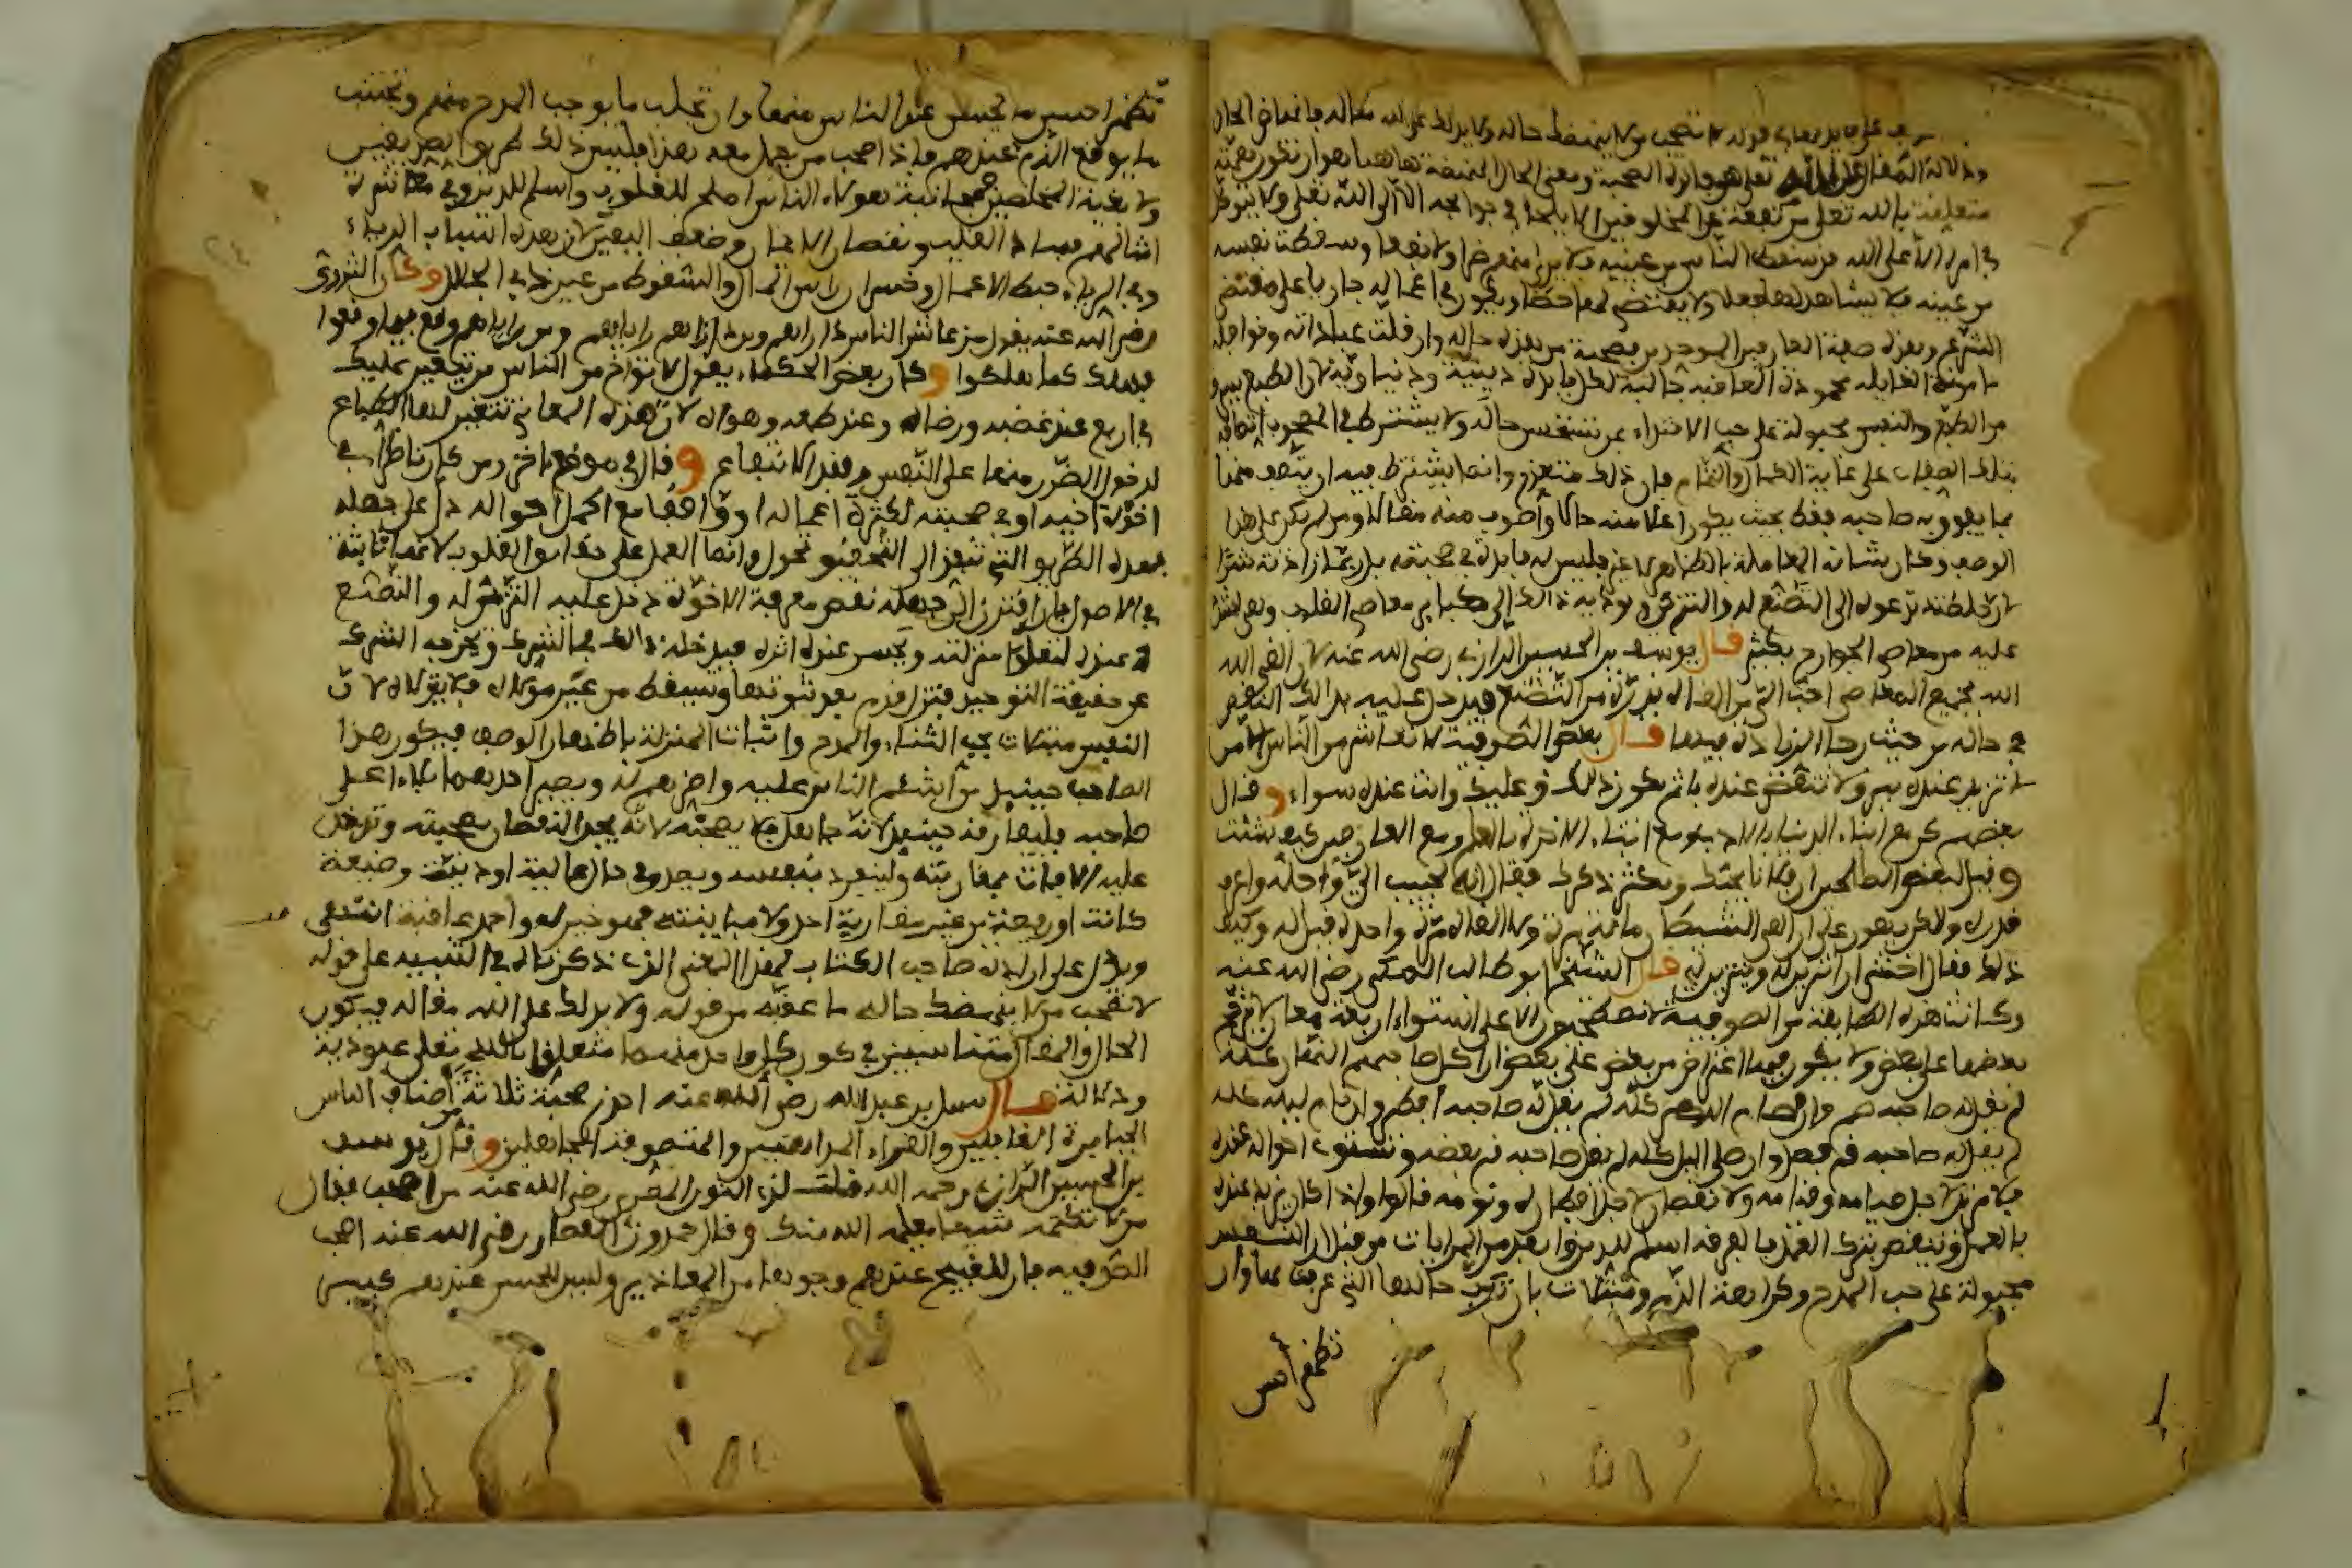 قوله لا تصحب من لا ينهضك حاله ولا يدلك على الله مقاله فانهاض الحال
ودلالة المقال على الله تعلى هو فائدة الصحبة ومعنى الحال المنهضة هاهنا هو ان تكون همته
متعلقة بالله تعلى مرتفعة عن المخلوقين لا يلجا في حوائجه الا الى الله تعلى ولا يتوكل
في امره الا على الله قد سقط الناس من عينيه فلا يرى منهم ضرا ولا نفعا وسقطت نفسه
من عينه فلا يشاهد لها فعلا ولا يقتضي لها حظا ويكون في اعماله جاريا على مقتضى
الشرع وهذه صفة العارفين الموحدين فصحبة من هذه حاله وان قلت عباداته ونوافله
مامونة الغايله محمودة العاقبة جالبة لكل فايدة دينية ودنياوية لان الطبع يسرق
من الطبع والنفس مجبولة على حب الاقتداء بمن تستحسن حاله ولا يشترط في المصحوب اتصافه
بتلك الصفات على غاية الكمال والتمام فان ذلك متعذر وانما يشترط فيه ان يتصف منها
بما يفوق به صاحبه فقط بحيث يكون اعلا منه حالا واصوب منه مقالا ومن لم يكن على هذا
الوصف وكان شانه المعاملة بالظاهر لا غير فليس له فايدة في صحبته بل ربما زادته شرا
لان خلطته تدعوه الى التصنع له والتزين ويوديه ذالك الى كباير معاصي القلوب وهي اشد
عليه من معاصي الجوارح بكثير قال يوسف بن الحسين الرازي رضي الله عنه لان القى الله
الله بجميع المعاصي احب الي من القاه بذرة من التصنع فيدخل عليه بذالك النقص
في حاله من حيث رجا الزيادة فيها قال بعض الصوفية لا تعاشر من الناس الا من
لا تزيد عنده ببر ولا تنقص عنده باثم يكون ذالك لك وعليك وانت عنده سواء وقال
بعضهم كن مع ابناء الدنيا بالادب ومع ابناء الاخرة بالعلم ومع العارفين كيف شئت
وقيل لبعض الصالحين ان فلانا يحبك ويكثر ذكرك فقال انه لحبيب الي واجله واعرف
قدره ولاكن يهون علي ان القى الشيطان مائة مرة ولا القاه مرة واحدة قيل له وكيف
ذلك فقال اخشى ان اتزين له ويتزين لي قال الشيخ ابو طالب المكي رضي الله عنه
وكانت هذه الطايفة من الصوفية لا يصطحبون الا على استواء اربعة معان لا يترجح
بعضها على بعض ولا يكون فيها اعتراض من بعض على بعض ان اكل صاحبهم النهار كله
لم يقل له صاحبه صم وان صام الدهر كله لم يقل له صاحبه افطر وان نام ليله كله
لم يقل له صاحبه قم فصل وان صلى اليل كله لم يقل صاحبه نم بعضه وتستوى احواله عنده
فلا مزيد لاجل صيامه وقيامه ولا نقصان لاجل افطاره ونومه قالوا واذا كان يزيد عنده
بالعمل وينقص بترك العمل فالفرقة اسلم للدين وابعد من المرايات من قبل ان النفس
مجبولة على حب المدح وكراهة الذم ومبتلات بان ترتب حالها التي عرفت بها وان
تظهر احس
تظهر احسن ما يحسن عند الناس منها وان تجلب ما يوجب المدح منهم وتجتنب
ما يوقع الذم عندهم فاذا صحب من يعمل معه هذا فليس ذلك طريق الصديقين
ولا بغية المخلصين فمجانبة هولاء الناس اصلح للقلوب واسلم للدين وفي معاشرة
امثالهم فساد القلب ونقصان الايمان وضعف اليقين لان هذه اسباب الرياء
وفي الرياء حبط الاعمال وخسران راس المال والسقوط من عين ذي الجلال وكان الثوري
رضي الله عنه يقول من عاشر الناس داراهم ومن داراهم راياهم ومن راياهم وقع فيما وقعوا
فهلك كما هلكوا وكان بعض الحكماء يقول لا تواخ من الناس من يتغير عليك
في اربع عند غضبه ورضاه وعند طمعه وهواه لان هذه المعاني تتغير لها الطباع
لدخول الضرر منها على النفس وفقد الانتفاع وقال في موضع اخر ومن كان ناظرا في
اخوة اخيه او في صحبته لكثرة اعماله او واقفا مع اكمل احواله دل على جهله
بهذه الطريق التي تنفذ الى التحقيق تحول وانما العمل على حقايق القلوب لانها ثابتة
في الاصول فان اقترن الى جهله نقص معرفة الاخوة دخل عليه التزين له والتصنع
عنده لتعلو منزلته ويحسن عنده اثره فيدخله ذالك في الشرك ويخرجه الشرك
عن حقيقة التوحيد فتزل قدم بعد ثبوتها ويسقط من عين مولاه فلا يتولاه لان
النفس مبتلات بحب الثناء والمدح واثبات المنزلة باظهار الوصف فيكون هذا
الصاحب حينيذ من اشئم الناس عليه واضرهم له ويصير احدهما بلاء على
صاحبه فليفارقه حينيذ لانه جاهل فلا يصحبه لانه يجد النقصان بصحبته وتدخل
عليه الافات بمقاربته ولينفرد بنفسه ويصدق في حال عالية او دنية وضيعة
كانت او رفيعة من غير مقاربة احد ولا مباينته فهو خير له واحمد عاقبة انتهى
ويدل على ارادة صاحب الكتاب لهذا المعنى الذي ذكرناه في التنبيه على قوله
لا تصحب من لا ينهضك حاله ما عقبه من قوله ولا يدلك على الله مقاله فيكون
الحال والمقال متناسبين في كون كل واحد منهما متعلقا بالله تعلى عبودية
ودلالة قال سهل بن عبد الله رضي الله عنه احذر صحبة ثلاثة من اصناف الناس
الجبابرة الغافلين والقراء المداهنين والمتصوفة الجاهلين وقال يوسف
بن الحسين الرازي رحمه الله قلت لذي النون المصري رضي الله عنه من اصحب فقال
من لا تكتمه شيئا يعلمه الله منك وقال حمدون القصار رضي الله عنه اصحب
الصوفية فان للقبيح عندهم وجوها من المعاذير وليس للحسن عندهم كبير